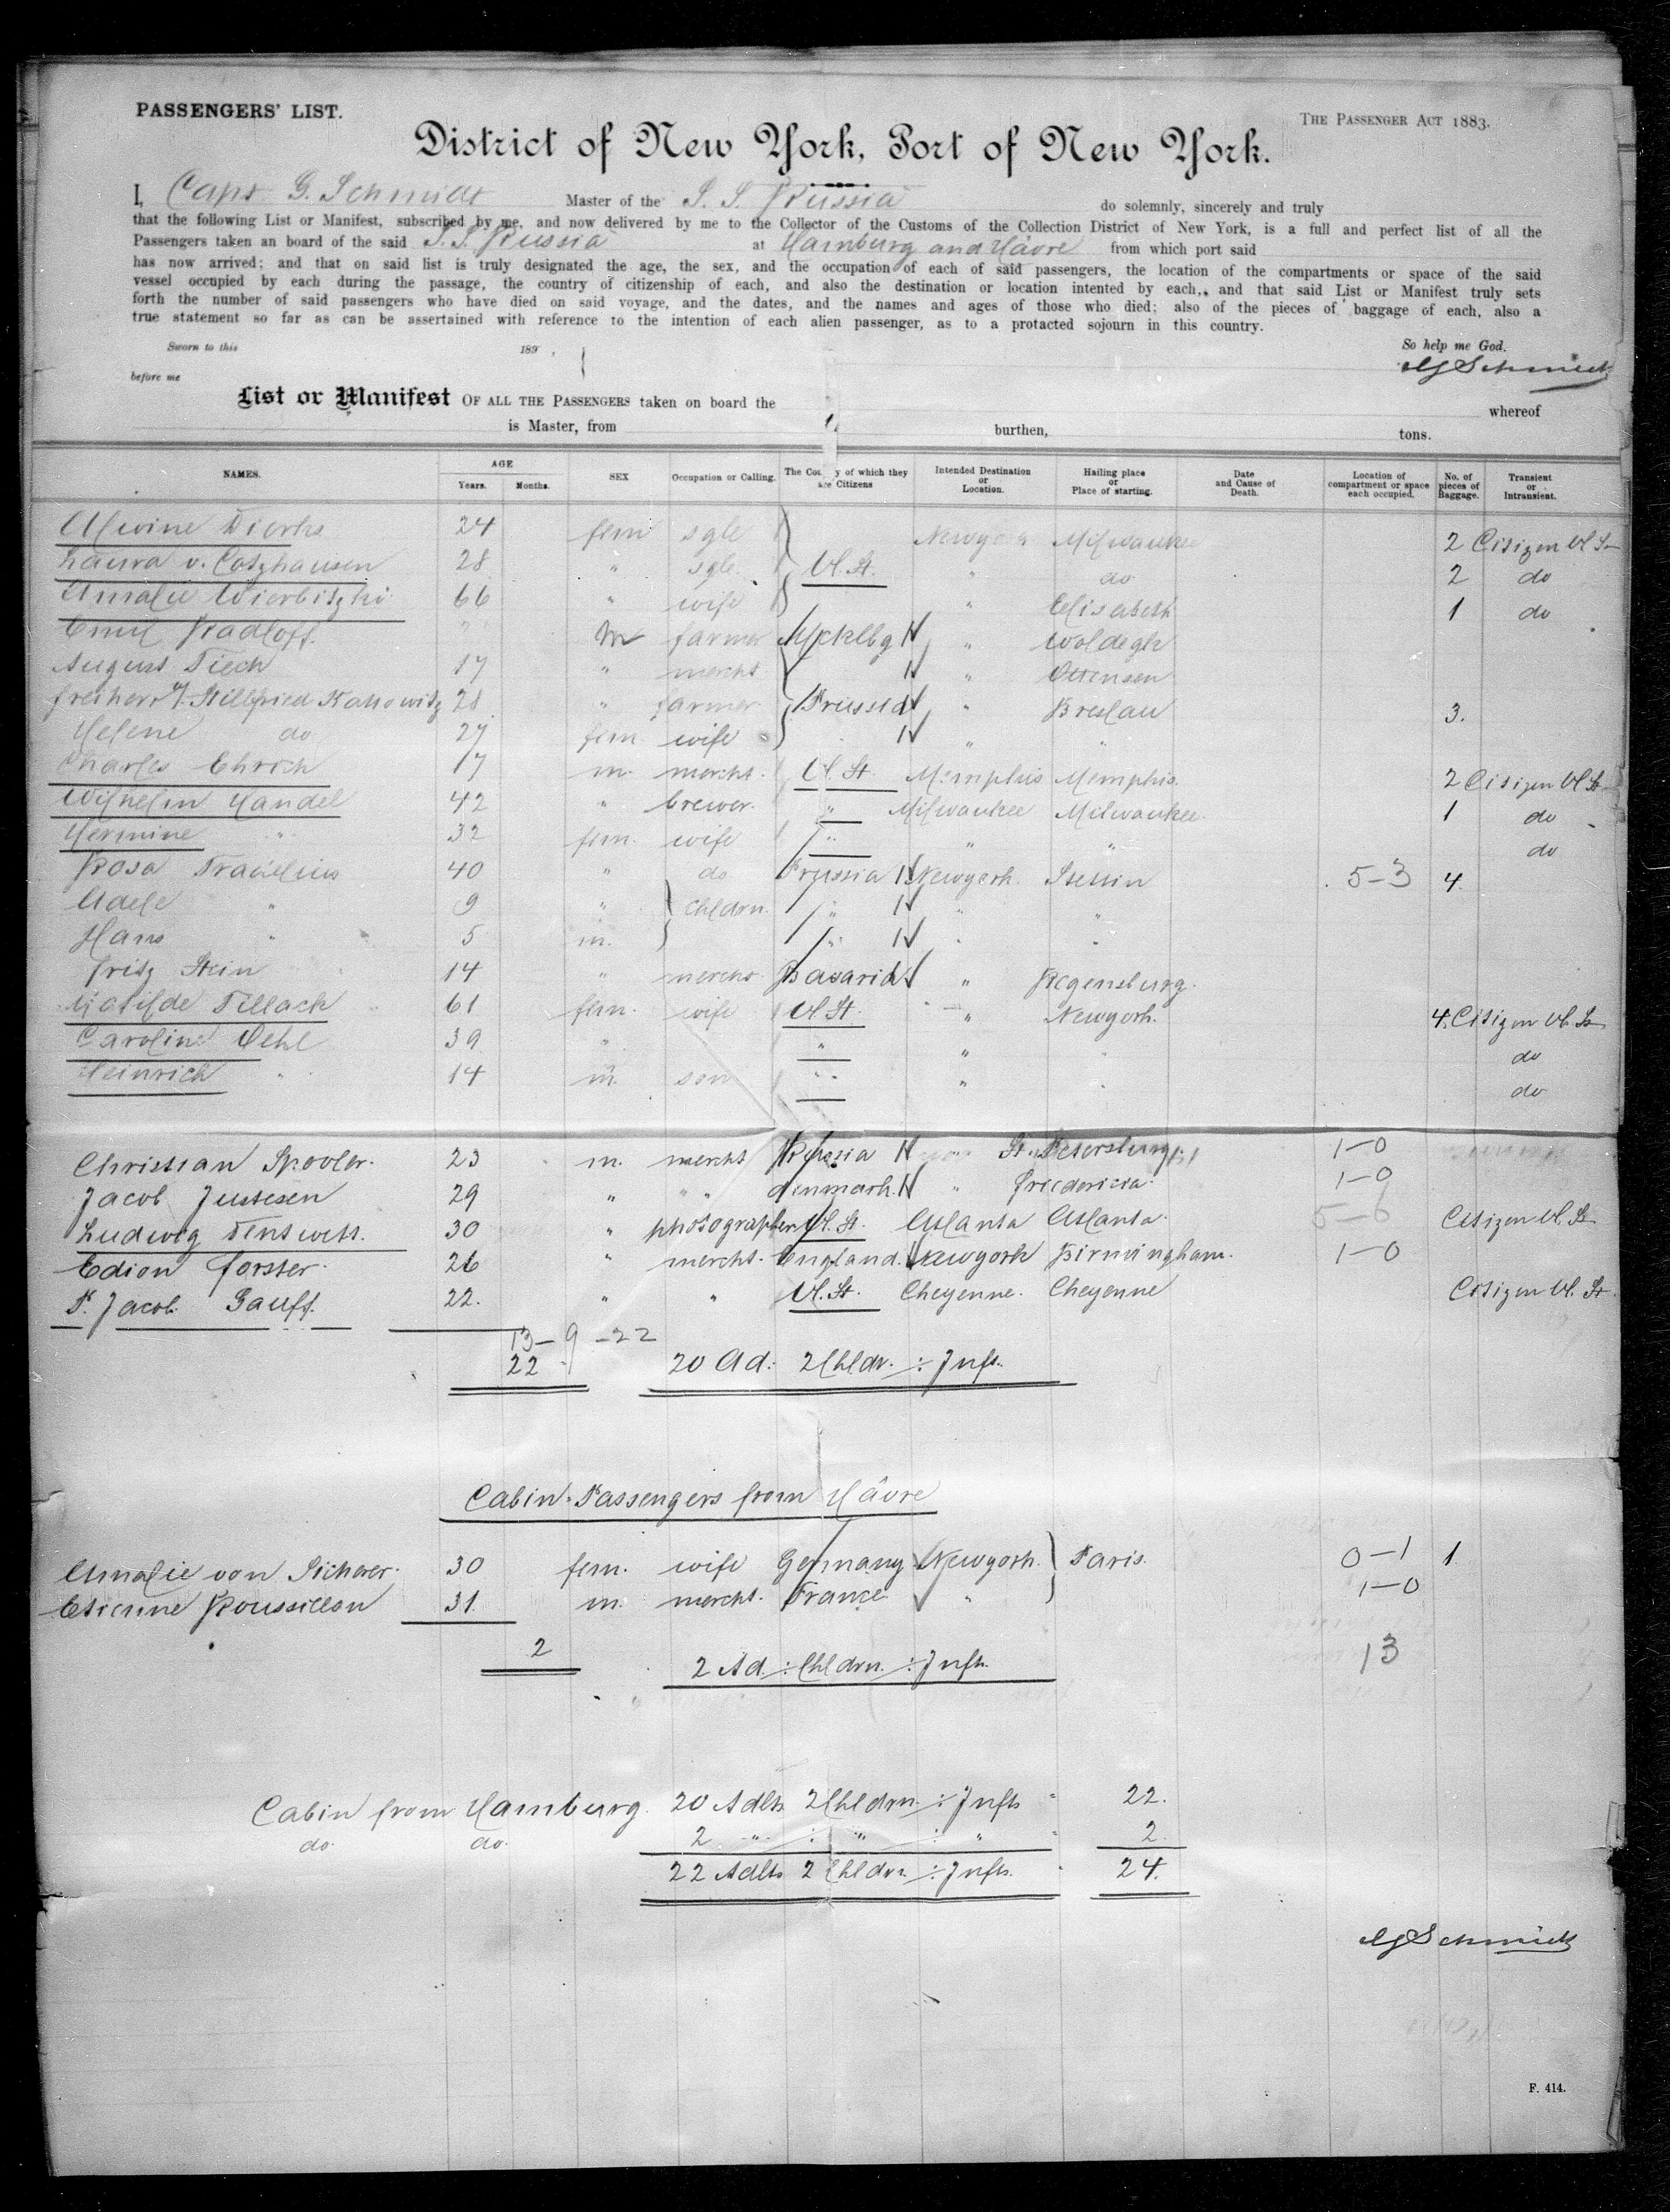 PASSENGERS' LIST.
THE PASSENGER ACT 1883.
District of New York, Port of New York.
I, Capt G. Schmidt Master of the S. S. Russia do solemnly, sincerely and truly
that the following List or Manifest, subscribed by me, and now delivered by me to the Collector of the Customs of the Collection District of New York, is a full and perfect list of all the
Passengers taken an board of the said S. S. Russia at Hamburg and Hâvre from which port said
has now arrived; and that on said list is truly designated the age, the sex, and the occupation of each of said passengers, the location of the compartments or space of the said
vessel occupied by each during the passage, the country of citizenship of each, and also the destination or location intented by each, and that said List or Manifest truly sets
forth the number of said passengers who have died on said voyage, and the dates, and the names and ages of those who died; also of the pieces of baggage of each, also a
true statement so far as can be assertained with reference to the intention of each alien passenger, as to a protacted sojourn in this country.
Sworn to this 189 , So help me God.
before me GSchmidt
List or Manifest OF ALL THE PASSENGERS taken on board the whereof
is Master, from burthen, tons.
NAMES. AGE Years. Months. SEX Occupation or Calling. The Country of which they are Citizens Intended Destination or Location. Hailing place or Place of starting. Date and Cause of Death. Location of compartment or space each occupied. No. of pieces of Baggage. Transient or Intransient.
Alwine Dierks 24 fem sgle Newyork Milwaukee 2 Citizen U St
Laura v. Cotzhausen 28 " sgle U. St. " do 2 do
Amalie Wierbitzki 66 " wife " Elisabeth 1 do
Emil Radloff. m farmer Mcklbg " Woldegk
August Tiech 17 " mercht " Ottensen
freiherr v. Stillfried Rattowitz 28 " farmer Prussia " Breslau 3.
Helene do 27 fem. wife " "
Charles Ehrich 17 m. mercht. U. St Memphis Memphis. 2 Citizen U St
Wilhelm Handel 42 " brewer. " Milwaukee Milwaukee. 1 do
Hermine " 32 fem. wife " " " do
Rosa Traëlius 40 " do Prussia Newyork. Stettin 5-3 4.
Adele " 9 " Chldrn. " " "
Hans " 5 m. " " "
fritz Stein 14 " mercht Bavaria " Regensburg.
Matilde Tillack 61 fem. wife U. St. " Newyork. 4. Citizen U. St
Caroline Oehl 39 " " " do
Heinrich " 14 m. son " " do
Christian Spovler. 23 m. mercht Russia St. Petersburg. 1-0
Jacob Justesen 29 " " denmark. " fredericia. 1-0
Ludwig 30 " photographer U. St. Atlanta Atlanta. 5-6 Citizen U. St
Edion forster. 26 " mercht. England. Newyork Birmingham. 1-0
P. Jacob Gauff. 22. " " U. St. Cheyenne. Cheyenne Citizen U. St
13-9-22
22 20 Ad: 2 Chldr. ÷ Jnft.
Cabin-Passengers from Hâvre
Amalie von Sicherer. 30 fem. wife Germany Newyork. Paris. 0-1 1.
Etienne Roussillon 31. m. mercht. France " 1-0
2 2 Ad. ÷ Chldrn. ÷ Jnft. 13
Cabin from Hamburg. 20 Adlts 2 Chldrn. ÷ Jnfts " 22.
do. do. 2 " ÷ " ÷ " " 2.
22 Adlts 2 Chldrn ÷ Jnfts. 24.
GSchmidt
F. 414.